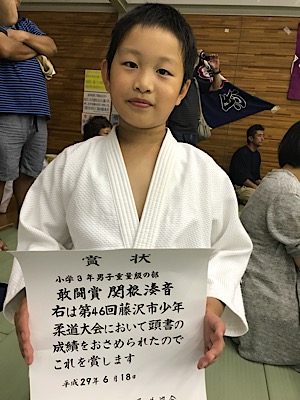 賞状
小学3年男子重量級の部
敢闘賞 関根湊音
右は第46回藤沢市少年
柔道大会において頭書の
成績をおさめられたので
これを賞します
平成29年6月18日